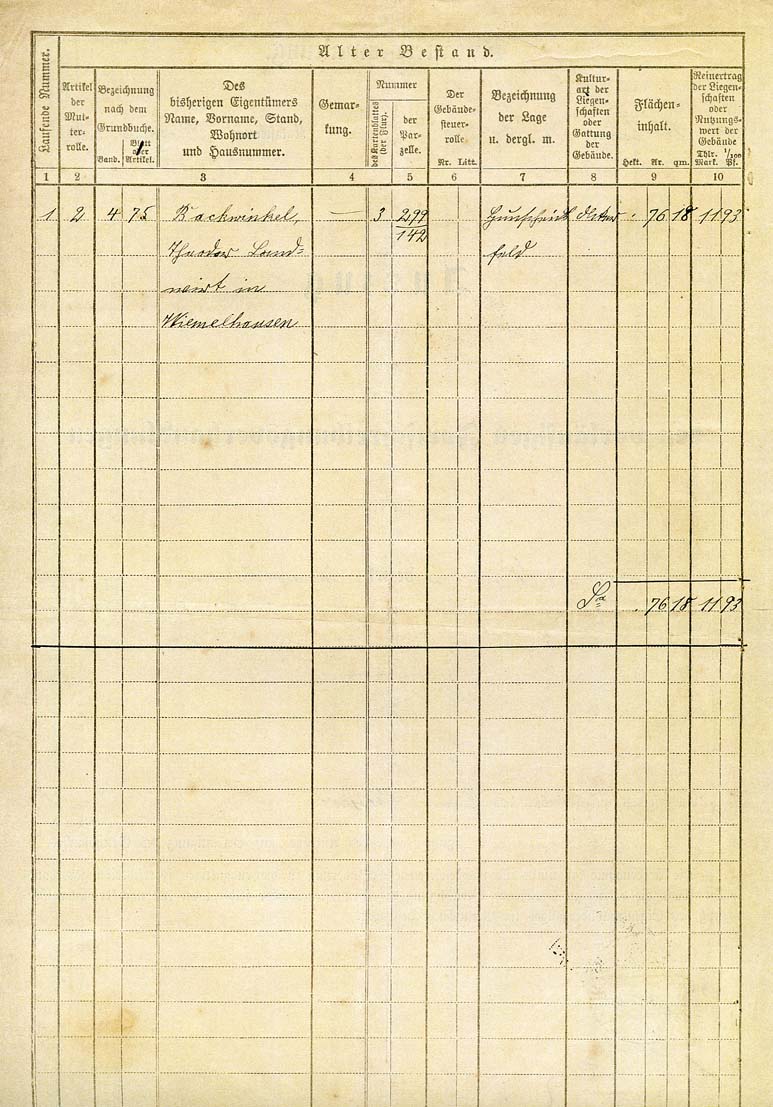 Alter Bestand.
Laufende Nummer.
Artikel
der
Mut-
ter-
rolle.
Bezeichnung
nach dem
Grundbuche.
Band.
Blatt
oder
Artikel.
Des
bisherigen Eigentümers
Name, Vorname, Stand,
Wohnort
und Hausnummer.
Gemar-
kung.
Nummer
des Kartenblattes
(der Flur).
der
Par-
zelle.
Der
Gebäude-
steuer-
rolle
Nr. Litt.
Bezeichnung
der Lage
u. dergl. m.
Kultur-
art der
Liegen-
schaften
oder
Gattung
der
Gebäude.
Flächen-
inhalt.
Hekt. Ar. qm.
Reinertrag
der Liegen-
schaften
oder
Nutzungs-
wert der
Gebäude
Thlr. 1/100
Mark. Pf.
1 2 3 4 5 6 7 8 9 10
1 2 4 75 Backwinkel, — 3 299 . 76 18 11 93
142
Theodor Land= feld
wirt in
Wiemelhausen
Sa . 76 18 11 93